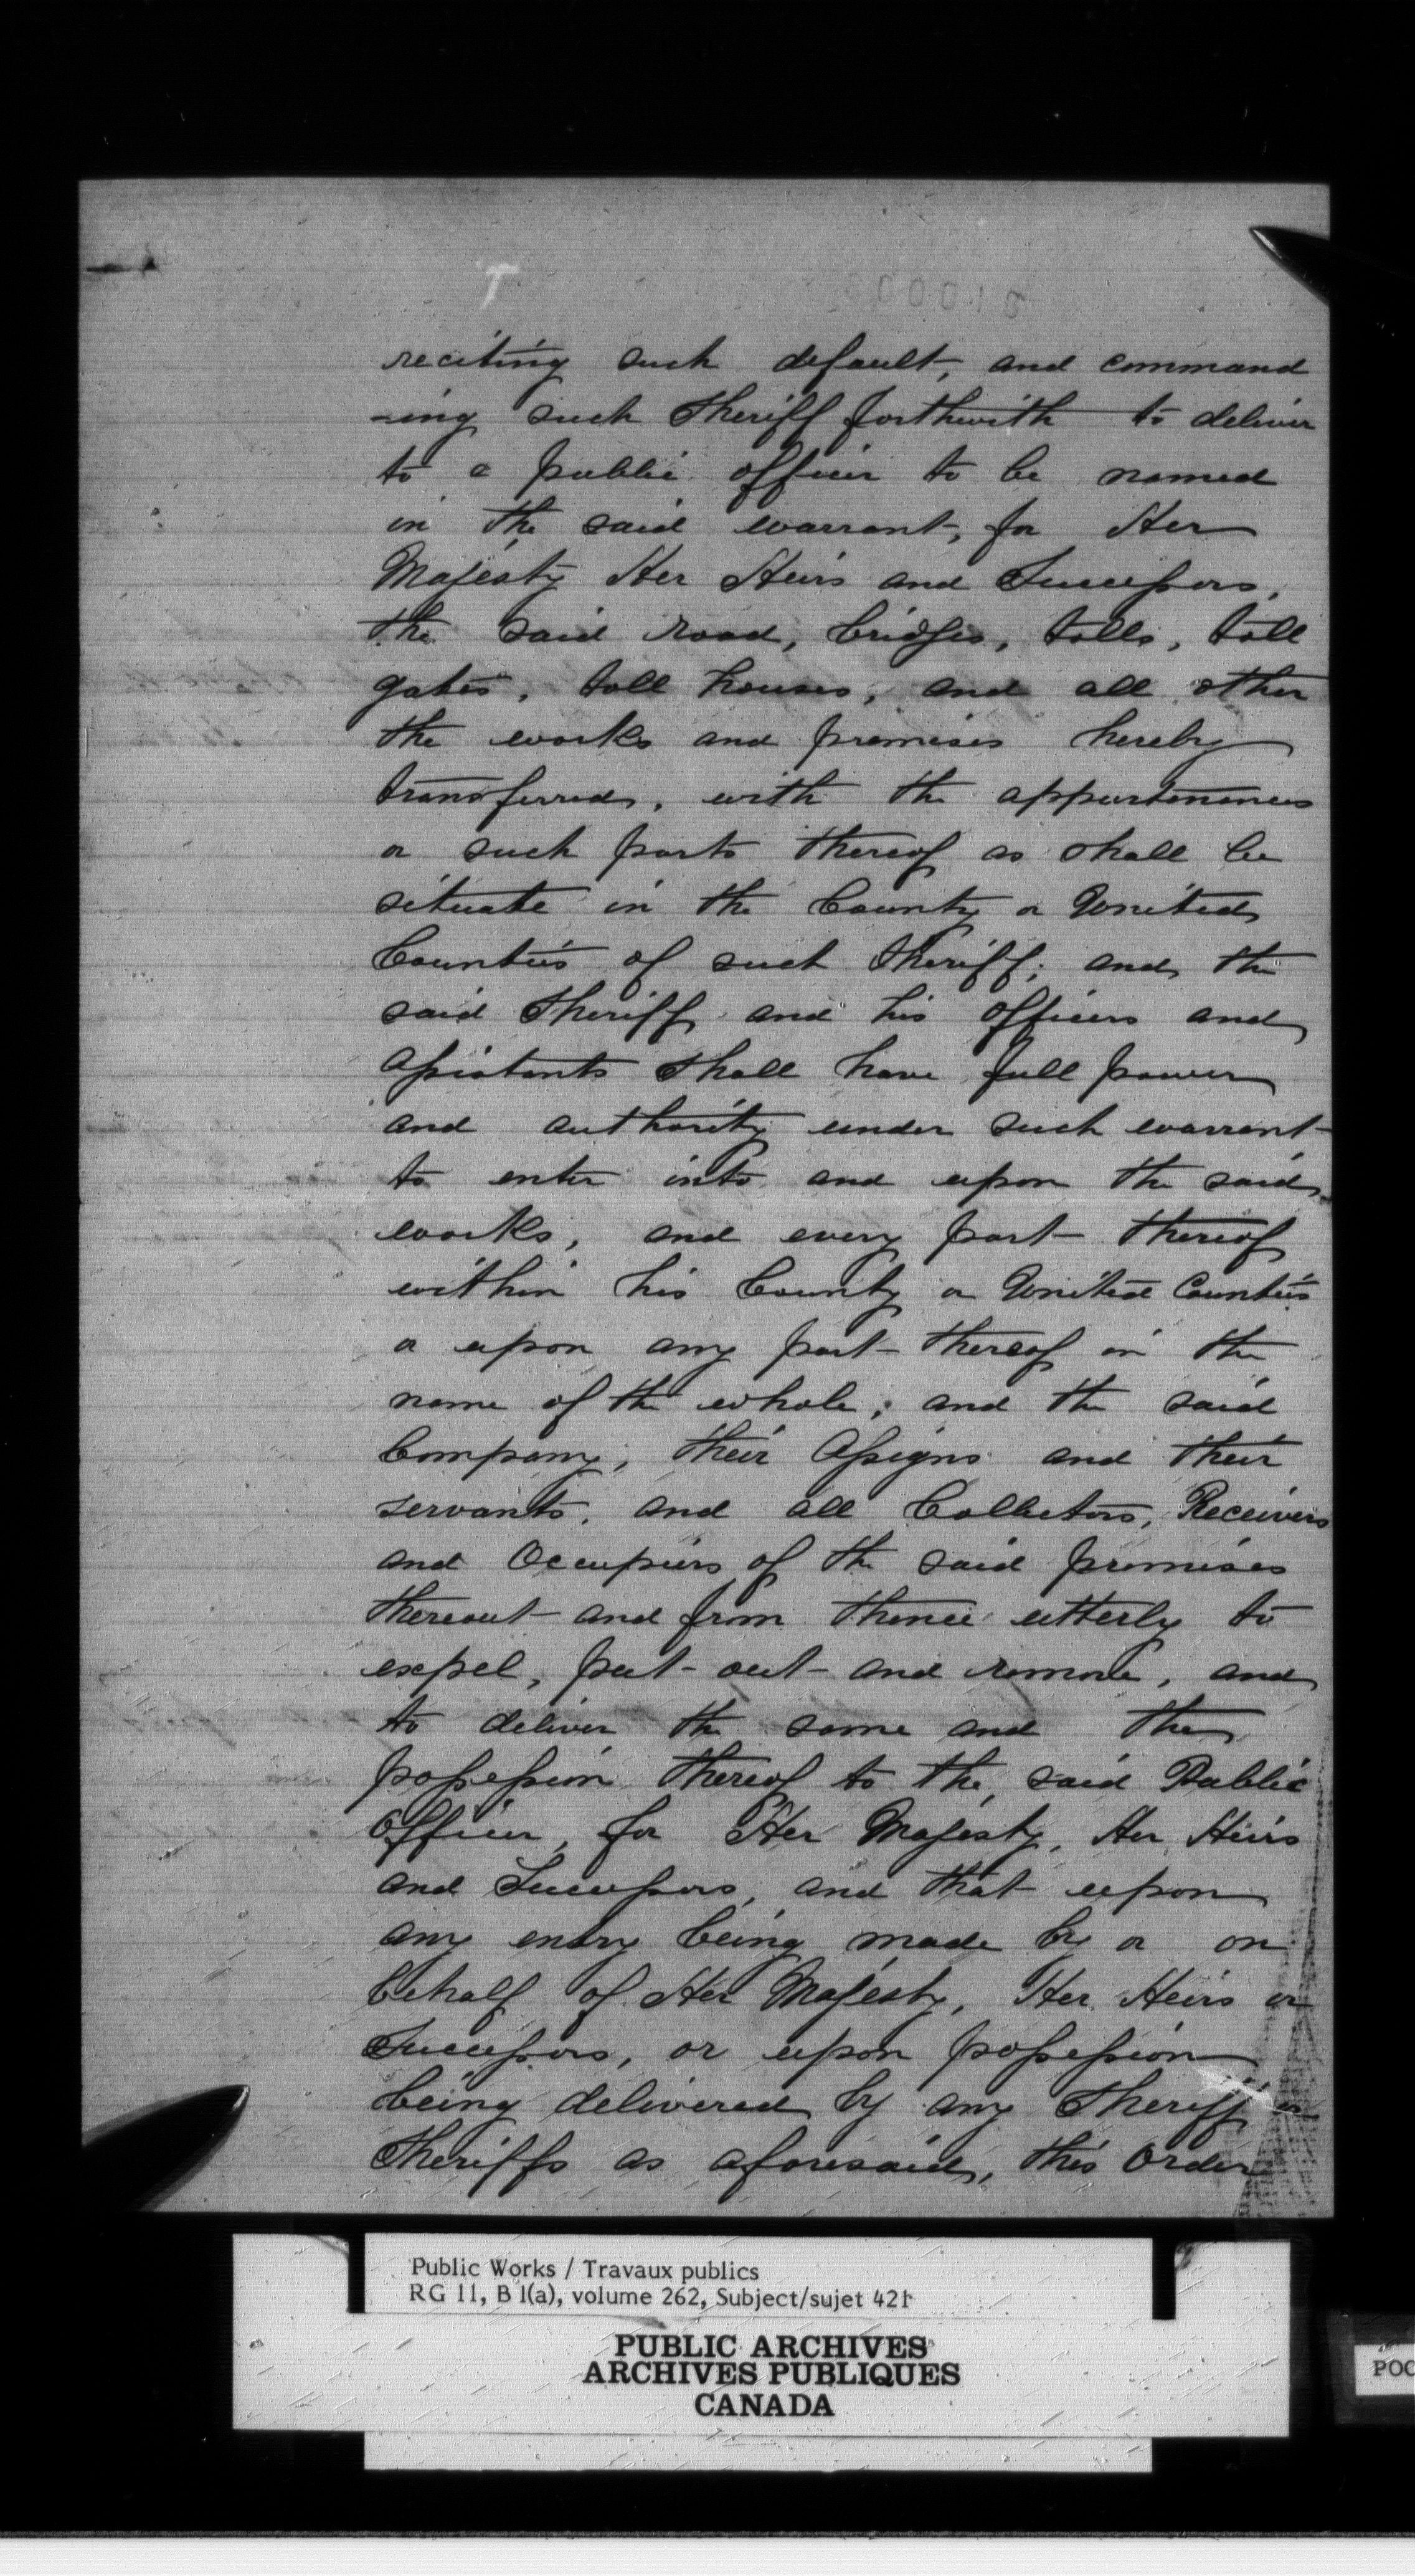 reciting such default, and command
-ing such Sheriff forthwith to deliver
to a public officer to be named
in the said warrant, for Her
Majesty Her Heirs and Successors,
the said road, bridges, tolls, toll
gates, toll houses, and all other
the works and premises hereby
transferred, with the appurtenances
or such parts thereof as shall be
situate in the County or United
Counties of such Sheriff; and the
said Sheriff and his Officers and
assistants shall have full power
and authority under such warrant
to enter into and upon the said
works, and every part thereof
within his County or United Counties
or upon any part thereof in the
name of the whole; and the said
Company, their Assigns and their
servants, and all Collectors, Receivers
and Occupiers of the said premises
thereout and from thence utterly to
expel, put out and remove, and
to deliver the same and the
possession thereof to the said Public
Officer, for Her Majesty, Her Heirs
and Successors, and that upon
any entry being made by or on
behalf of Her Majesty, Her Heirs or
Successors, or upon possession
being delivered by any Sheriff or
Sheriffs as aforesaid, this Order
Public Works / Travaux publics
RG 11, B 1(a), volume 262, Subject/sujet 421
PUBLIC ARCHIVES
ARCHIVES PUBLIQUES
CANADA